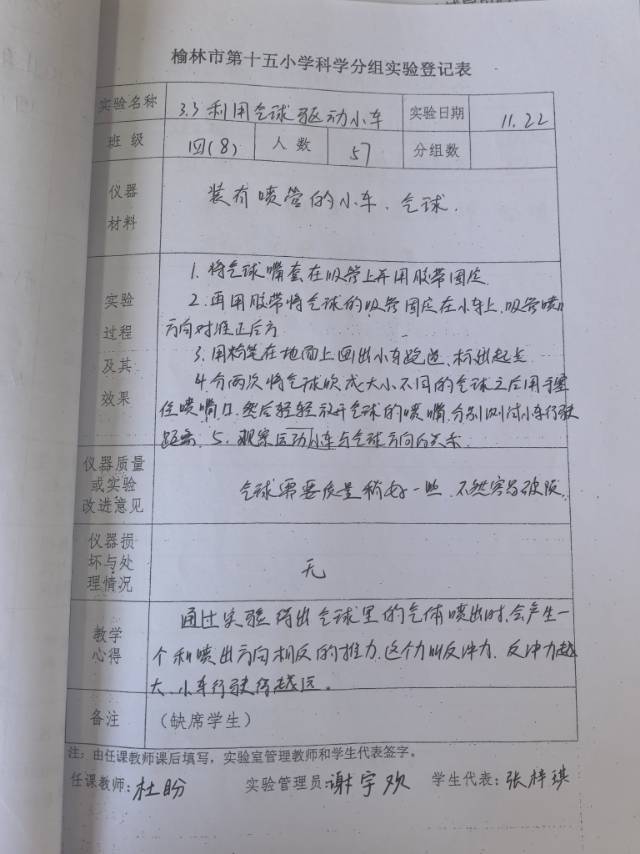 榆林市第十五小学科学分组实验登记表
实验名称 3.3利用气球驱动小车 实验日期 11.22
班级 四(8) 人数 57 分组数
仪器材料 装有喷管的小车、气球.
实验过程及其效果
1. 将气球嘴套在吸管上并用胶带固定
2. 再用胶带将气球的吸管固定在小车上,吸管喷口
方向对准正后方
3. 用粉笔在地面上画出小车跑道,标出起点
4. 分两次将气球吹成大小不同的气球之后用手
住喷嘴口,然后轻轻放开气球的喷嘴,分别测试小车行驶
距离. 5. 观察运动小车与气球方向的关系.
仪器质量或实验改进意见 气球需要质量稍好一些,不然容易破损.
仪器损坏与处理情况 无
教学心得
通过实验得出气球里的气体喷出时,会产生一
个和喷出方向相反的推力,这个力叫反冲力,反冲力越
大,小车行驶得越远。
备注 (缺席学生)
注:由任课教师课后填写,实验室管理教师和学生代表签字。
任课教师:杜盼 实验管理员:谢宇欢 学生代表:张梓琪